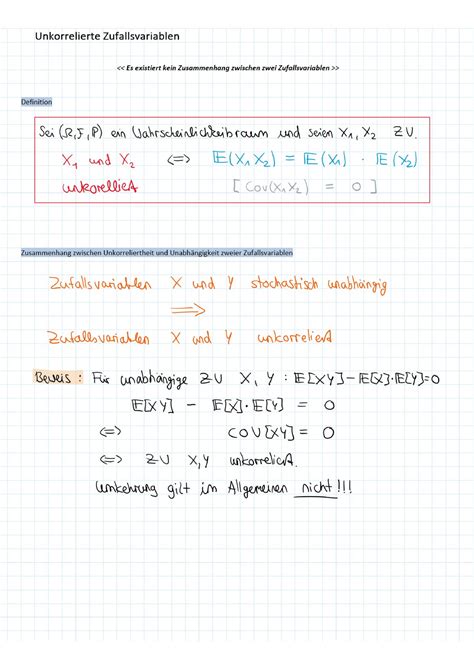 Unkorrelierte Zufallsvariablen
<< Es existiert kein Zusammenhang zwischen zwei Zufallsvariablen >>
Definition
Sei (Ω,F,P) ein Wahrscheinlichkeitsraum und seien X₁, X₂ ZV.
X₁ und X₂ <=> E(X₁X₂) = E(X₁) · E(X₂)
unkorelliert [Cov(X₁X₂) = 0]
Zusammenhang zwischen Unkorreliertheit und Unabhängigkeit zweier Zufallsvariablen
Zufallsvariablen X und Y stochastisch unabhängig
=>
Zufallsvariablen X und Y unkorreliert
Beweis: Für unabhängige ZV X, Y : E[XY] - E[X]·E[Y]=0
E[XY] - E[X]·E[Y] = 0
<=> COV[XY] = 0
<=> ZV X,Y unkorreliert.
Umkehrung gilt im Allgemeinen nicht!!!